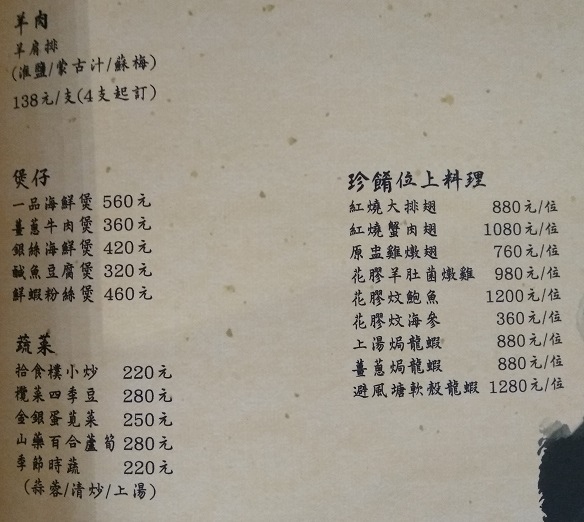 羊肉
羊肩排
(淮鹽/蒙古汁/蘇梅)
138元/支(4支起訂)
煲仔
一品海鮮煲 560元
薑蔥牛肉煲 360元
銀絲海鮮煲 420元
鹹魚豆腐煲 320元
鮮蝦粉絲煲 460元
蔬菜
拾食樸小炒 220元
欖菜四季豆 280元
金銀蛋莧菜 250元
山藥百合蘆筍 280元
季節時蔬 220元
(蒜蓉/清炒/上湯)
珍餚位上料理
紅燒大排翅 880元/位
紅燒蟹肉翅 1080元/位
原盅雞燉翅 760元/位
花膠羊肚菌燉雞 980元/位
花膠炆鮑魚 1200元/位
花膠炆海參 360元/位
上湯焗龍蝦 880元/位
薑蔥焗龍蝦 880元/位
避風塘軟殼龍蝦 1280元/位